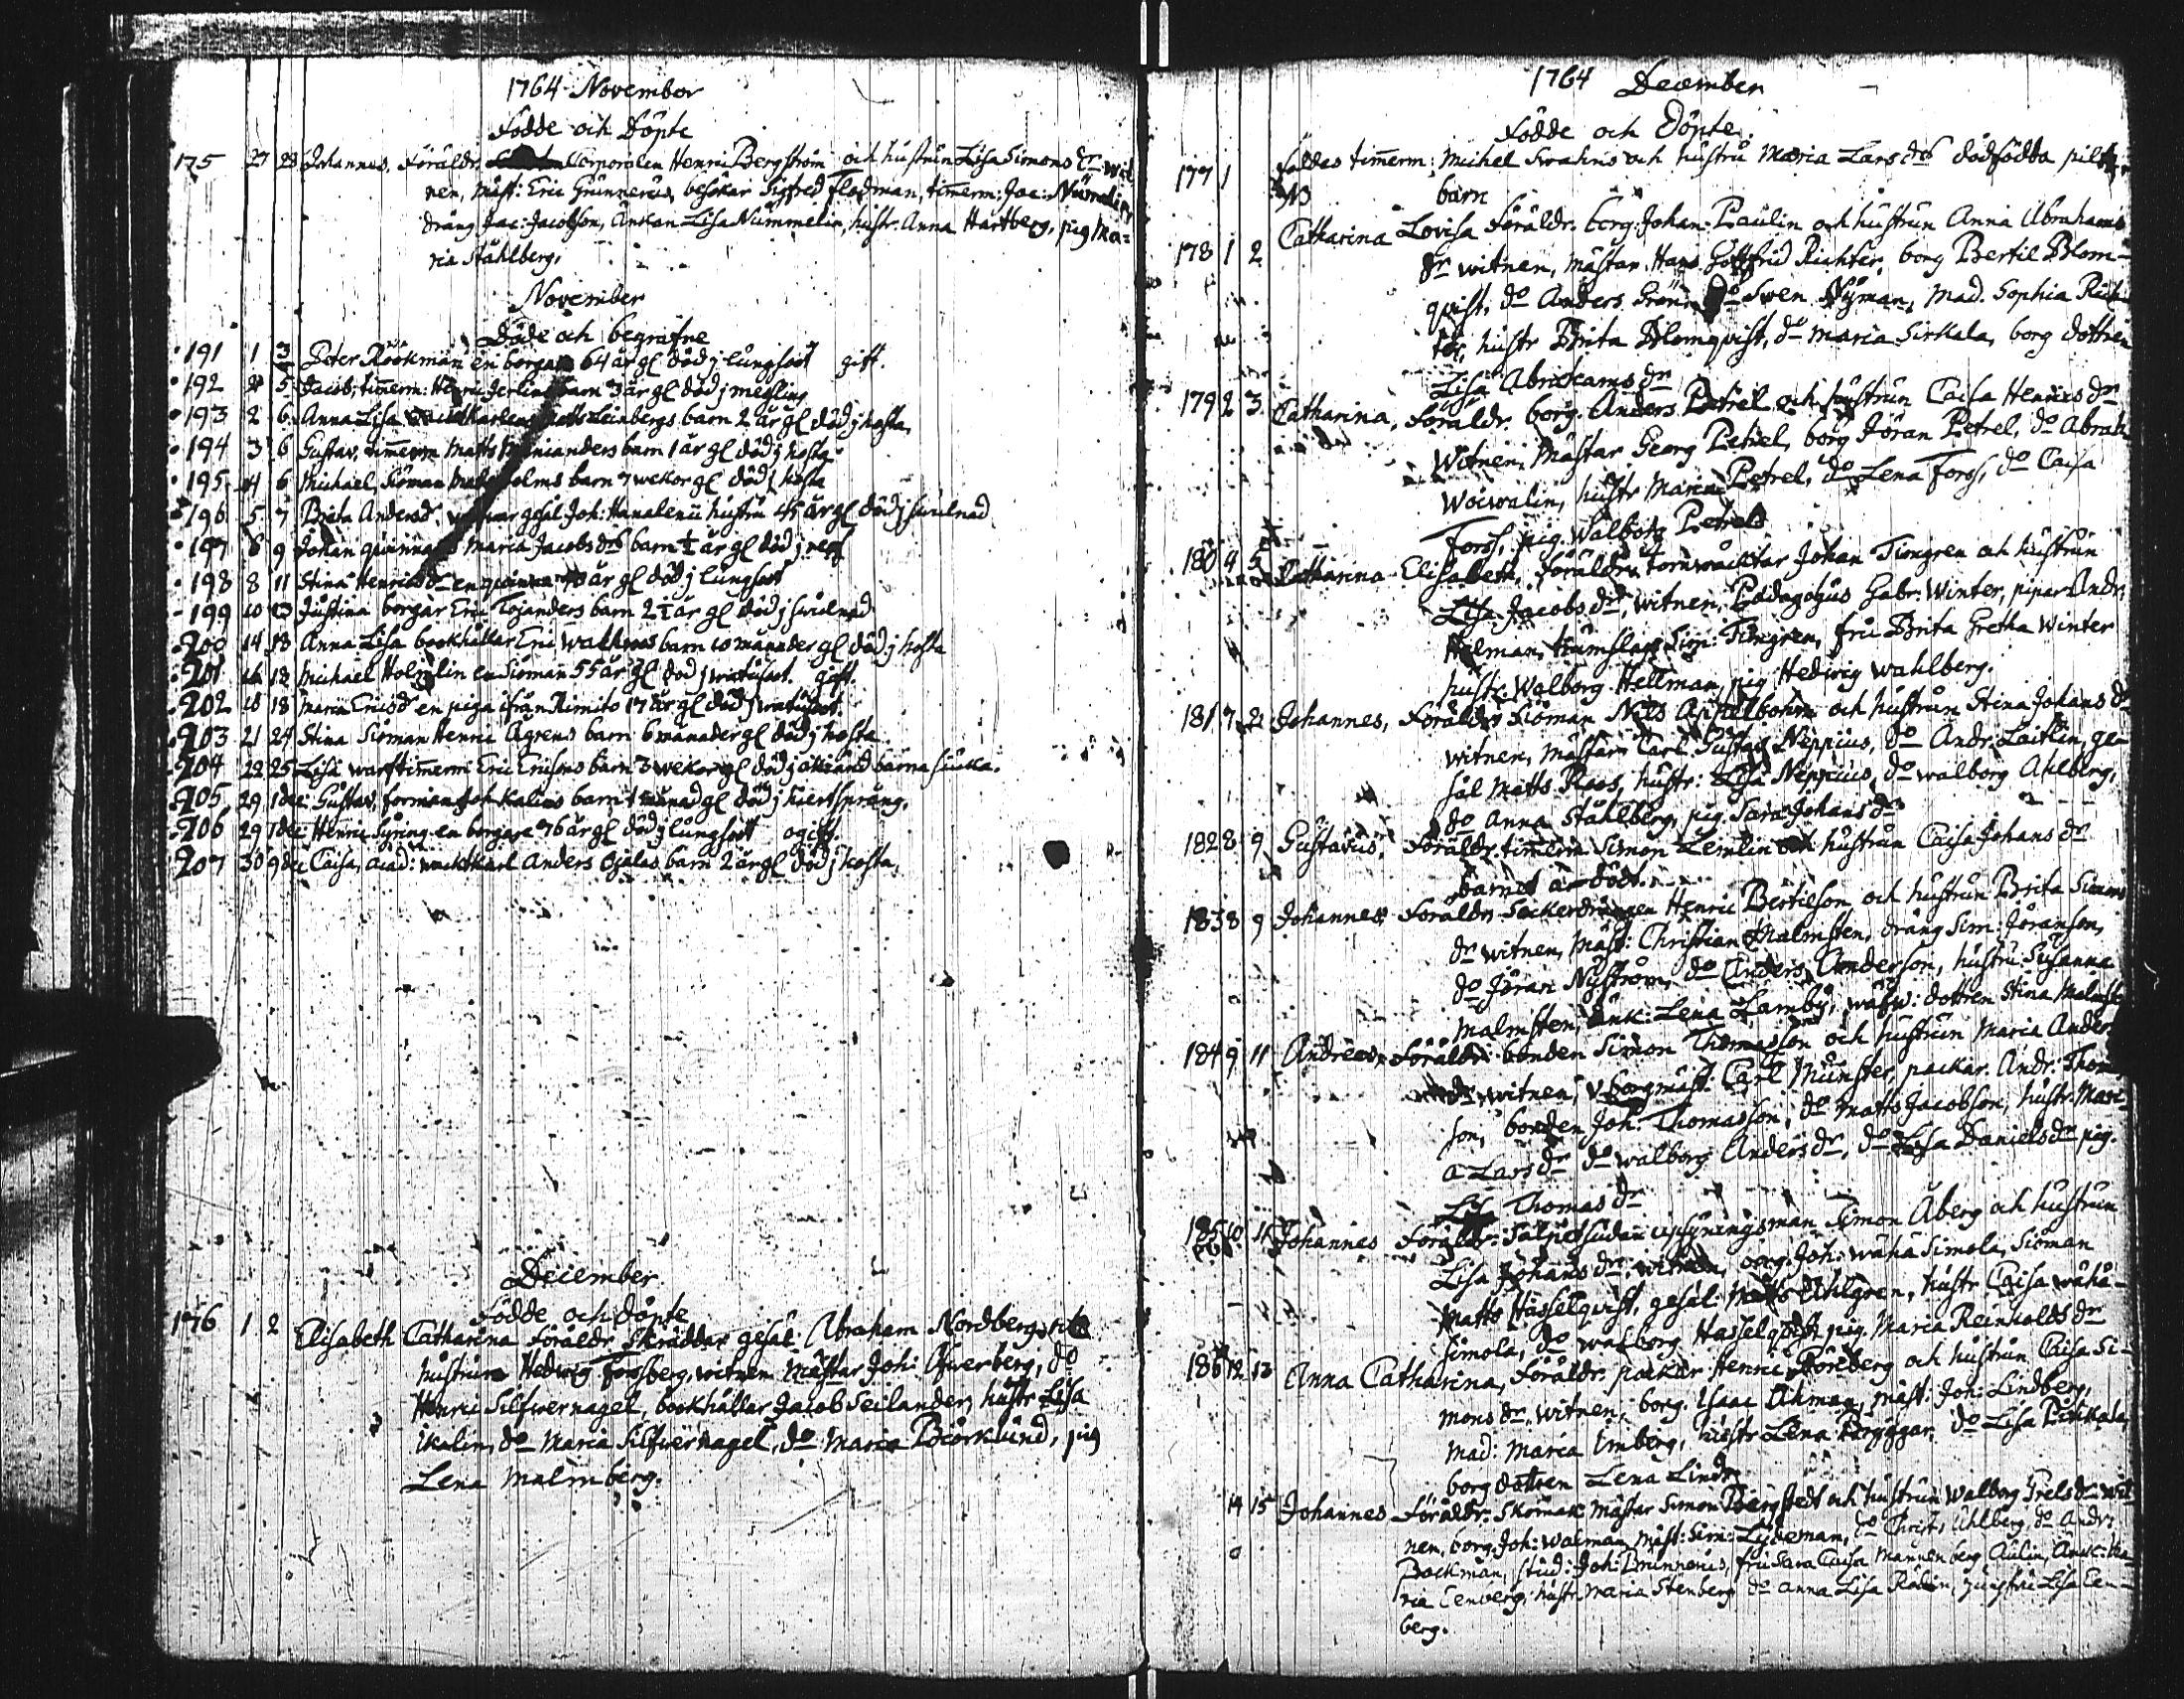 1764 November
Födde och Döpte
175 27 28 Johannes, Föräldr. Corporalen Henric Bergström och hustrun Lisa Simons dr wit
nen, mäst: Eric Grunnerus, besökar Sigfred Flodman, timerm: Jac: Nummelin
dräng Jac: Jacobson, Änkan Lisa Nummelin, hustr. Anna Hartberg, pig Ma-
ria Ståhlberg,
November
Döde och begrafne
191 1 3 Peter Röökman en borgare 64 år gl död j lungsoot gift.
192 5 Jacob, timerm: Henric barn 3 år gl död j messling
193 2 6 Anna Lisa Leinbergs barn 2 år gl död j hosta,
194 3 6 Gustav, timerm Matts barn 1 år gl död j hosta
195 4 6 Michael, Siöman barn 7 wekor gl död j hosta
196 5 7 Brita Andersdr. gesäl Joh: hustru 45 år gl död j swulnad
197 8 9 Johan Maria Jacobs drs barn ½ år gl död j
198 8 11 Stina Henrics dr en qwinna år gl död j lungsoot
199 10 13 Justina borgar Eric Tojanders barn 2½ år gl död j swulnad
200 14 18 Anna Lisa bookhållar Eric barn 10 månader gl död j hosta
201 16 18 Michael Holmlin en Siöman 55 år gl död j watusoot. gift.
202 18 18 Maria Ericsdr en piga ifrån Rimito 17 år gl död j watusoot.
203 21 24 Stina Siöman Henric Ågrens barn 6 månader gl död j hosta
204 22 25 Lisa warftimerm Eric Ericsons barn 3 wekor gl död j okiänd barna siuka.
205 29 1 dec: Gustav, forman Joh Kalins barn 1 månad gl död j hiertspräng.
206 29 7 dec: Henric Syring en borgare 76 år gl död j lungsoot ogift.
207 30 9 dec Caisa, acad: wacktkarl Anders Ojalas barn 2 år gl död j hosta,
December
Födde och Döpte
176 1 2 Elisabeth Catharina Föräldr. Skräddar gesäl: Abraham Nordberg och
hustrun Hedwig Forssberg, witnen Mästar Joh: Afwerberg, do
Henric Silfwernagel, bookhållar Jacob Seilander, hustr Lisa
Ikalin, do Maria Silfwernagel, do Maria Biörklund, pig
Lena Malmberg.
1764 December
Födde och Döpte.
177 1 Föddes timerm: Michel Swahns och hustru Maria Lars drs dödfödda pilt
barn
178 1 2 Catharina Lovisa Föräldr. borg: Johan Paulin och hustrun Anna Abrahams
dr witnen, Mästar Hans Gottfrid Richter, borg Bertil Blom-
qvist, do Anders Grön, do Swen Nyman, Mad. Sophia Rich
ter, hustr Brita Blomqvist, do Maria Sirkala, borg dottren
Lisa Abrahams dr
179 2 3 Catharina, Föräldr. borg. Anders Petrel och hustrun Caisa Henrics dr
Witnen, Mästar Georg Petrel, borg Jöran Petrel, do Abrah
Woiwalin, hustr Maria Petrel, do Lena Forss, do Caisa
Forss, pig Walborg Petrel
180 4 5 Catharina Elisabeth, Föräldr. tornwäcktar Johan Timgren och hustrun
Lisa Jacobs dr, witnen, Pædagogus Gabr: Winter, pipar Andr:
Helman, trumslag: Sim: Timgren, fru Brita Gretha Winter
hustr. Walborg Hellman pig Hedwig Wahlberg.
181 7 Johannes, Föräldr Siöman Nils Appelbohm och hustrun Stina Johans dr
witnen, Mästar Carl Gustaf Neppius, do Andr: Laitlin, ge-
säl Matts Roos, hustr: Lisa Neppius, do Walborg Ahlberg,
do Anna Ståhlberg, pig Sara Johans dr
182 8 9 Gustavus, Föräldr. timerm Simon Lemlin och hustrun Caisa Johans dr
barnet är dödt.
183 8 9 Johannes Föräldr. Sockerdrängen Henric Bertilson och hustrun Brita Simons
dr witnen, Mäst: Christian Malmsten, dräng Sim: Jöranson,
do Jöran Nyström, do Anders Anderson, hustru Susanna
Malmsten, änk: Lena Lamby, wäfw: dottren Stina Malmst
184 9 11 Andreas, Föräldr. bonden Simon Thomasson och hustrun Maria Anders
dr, witnen, v borgmäst: Carl Munster, packar. Andr. Thomas
son, bonden Joh: Thomasson, do Matts Jacobson, hustr Mari-
a Lars dr do Walborg Anders dr, do Lisa Daniels dr pig.
Thomas dr
185 10 11 Johannes Föräldr: Salpetsiudari upsyningsman Simon Åberg och hustrun
Lisa Johans dr, witnen, borg. Joh: Wähä Simola, Siöman
Matts Hasselqvist, gesäl: Matts Ahlgren, hustr Caisa Wähä-
Simola, do Walborg Hasselqvist, pig Maria Reinholds dr
186 12 13 Anna Catharina, Föräldr. packar Henric Bårdberg och hustrun Caisa Si-
mons dr, witnen, borg. Isaac Åkman, mäst: Joh: Lindberg,
Mad: Maria Imberg, hustr Lena Bryggar, do Lisa Pirkkala,
borg dottren Lena Lindr
14 15 Johannes Föräldr. Skomak: Mästar Simon Bergstedt och hustrun Walborg Grels dr wit
nen, borg. Joh: Waiman, mäst: Sim: Lydeman, do Christ: Ahlberg, do Andr:
Backman, stud: Joh: Brunnerus, fru Sara Caisa Mannenberg Aulin, Änk: Ma-
ria Eenberg, hustr. Maria Stenberg do Anna Lisa Rådin, jungfru Lisa Een-
berg.